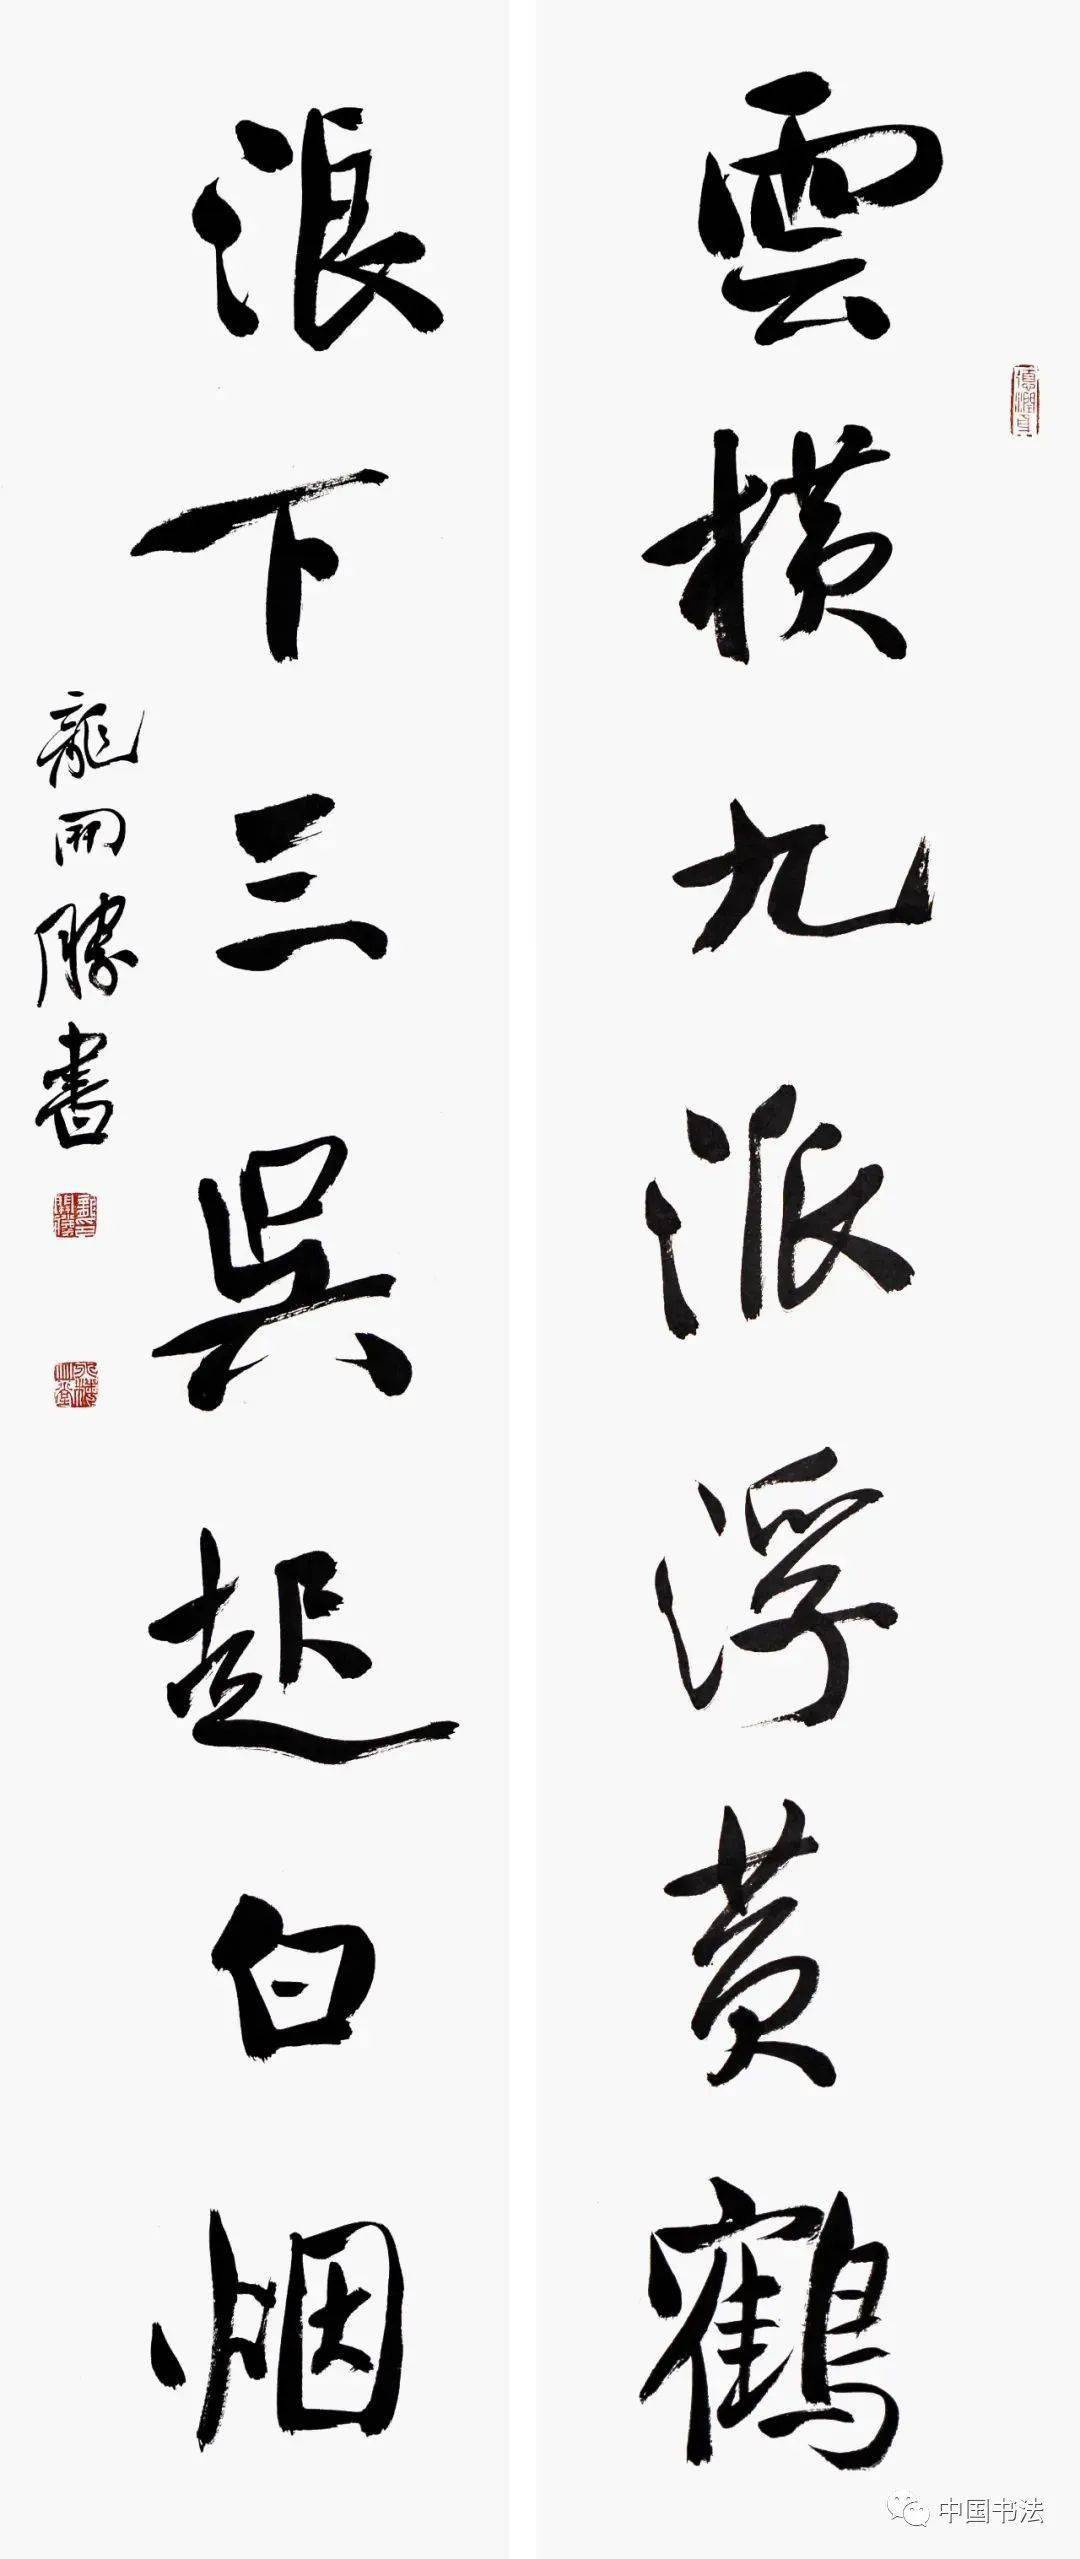 雲橫九派浮黄鶴
浪下三吳起白烟
龍開勝書
中国书法